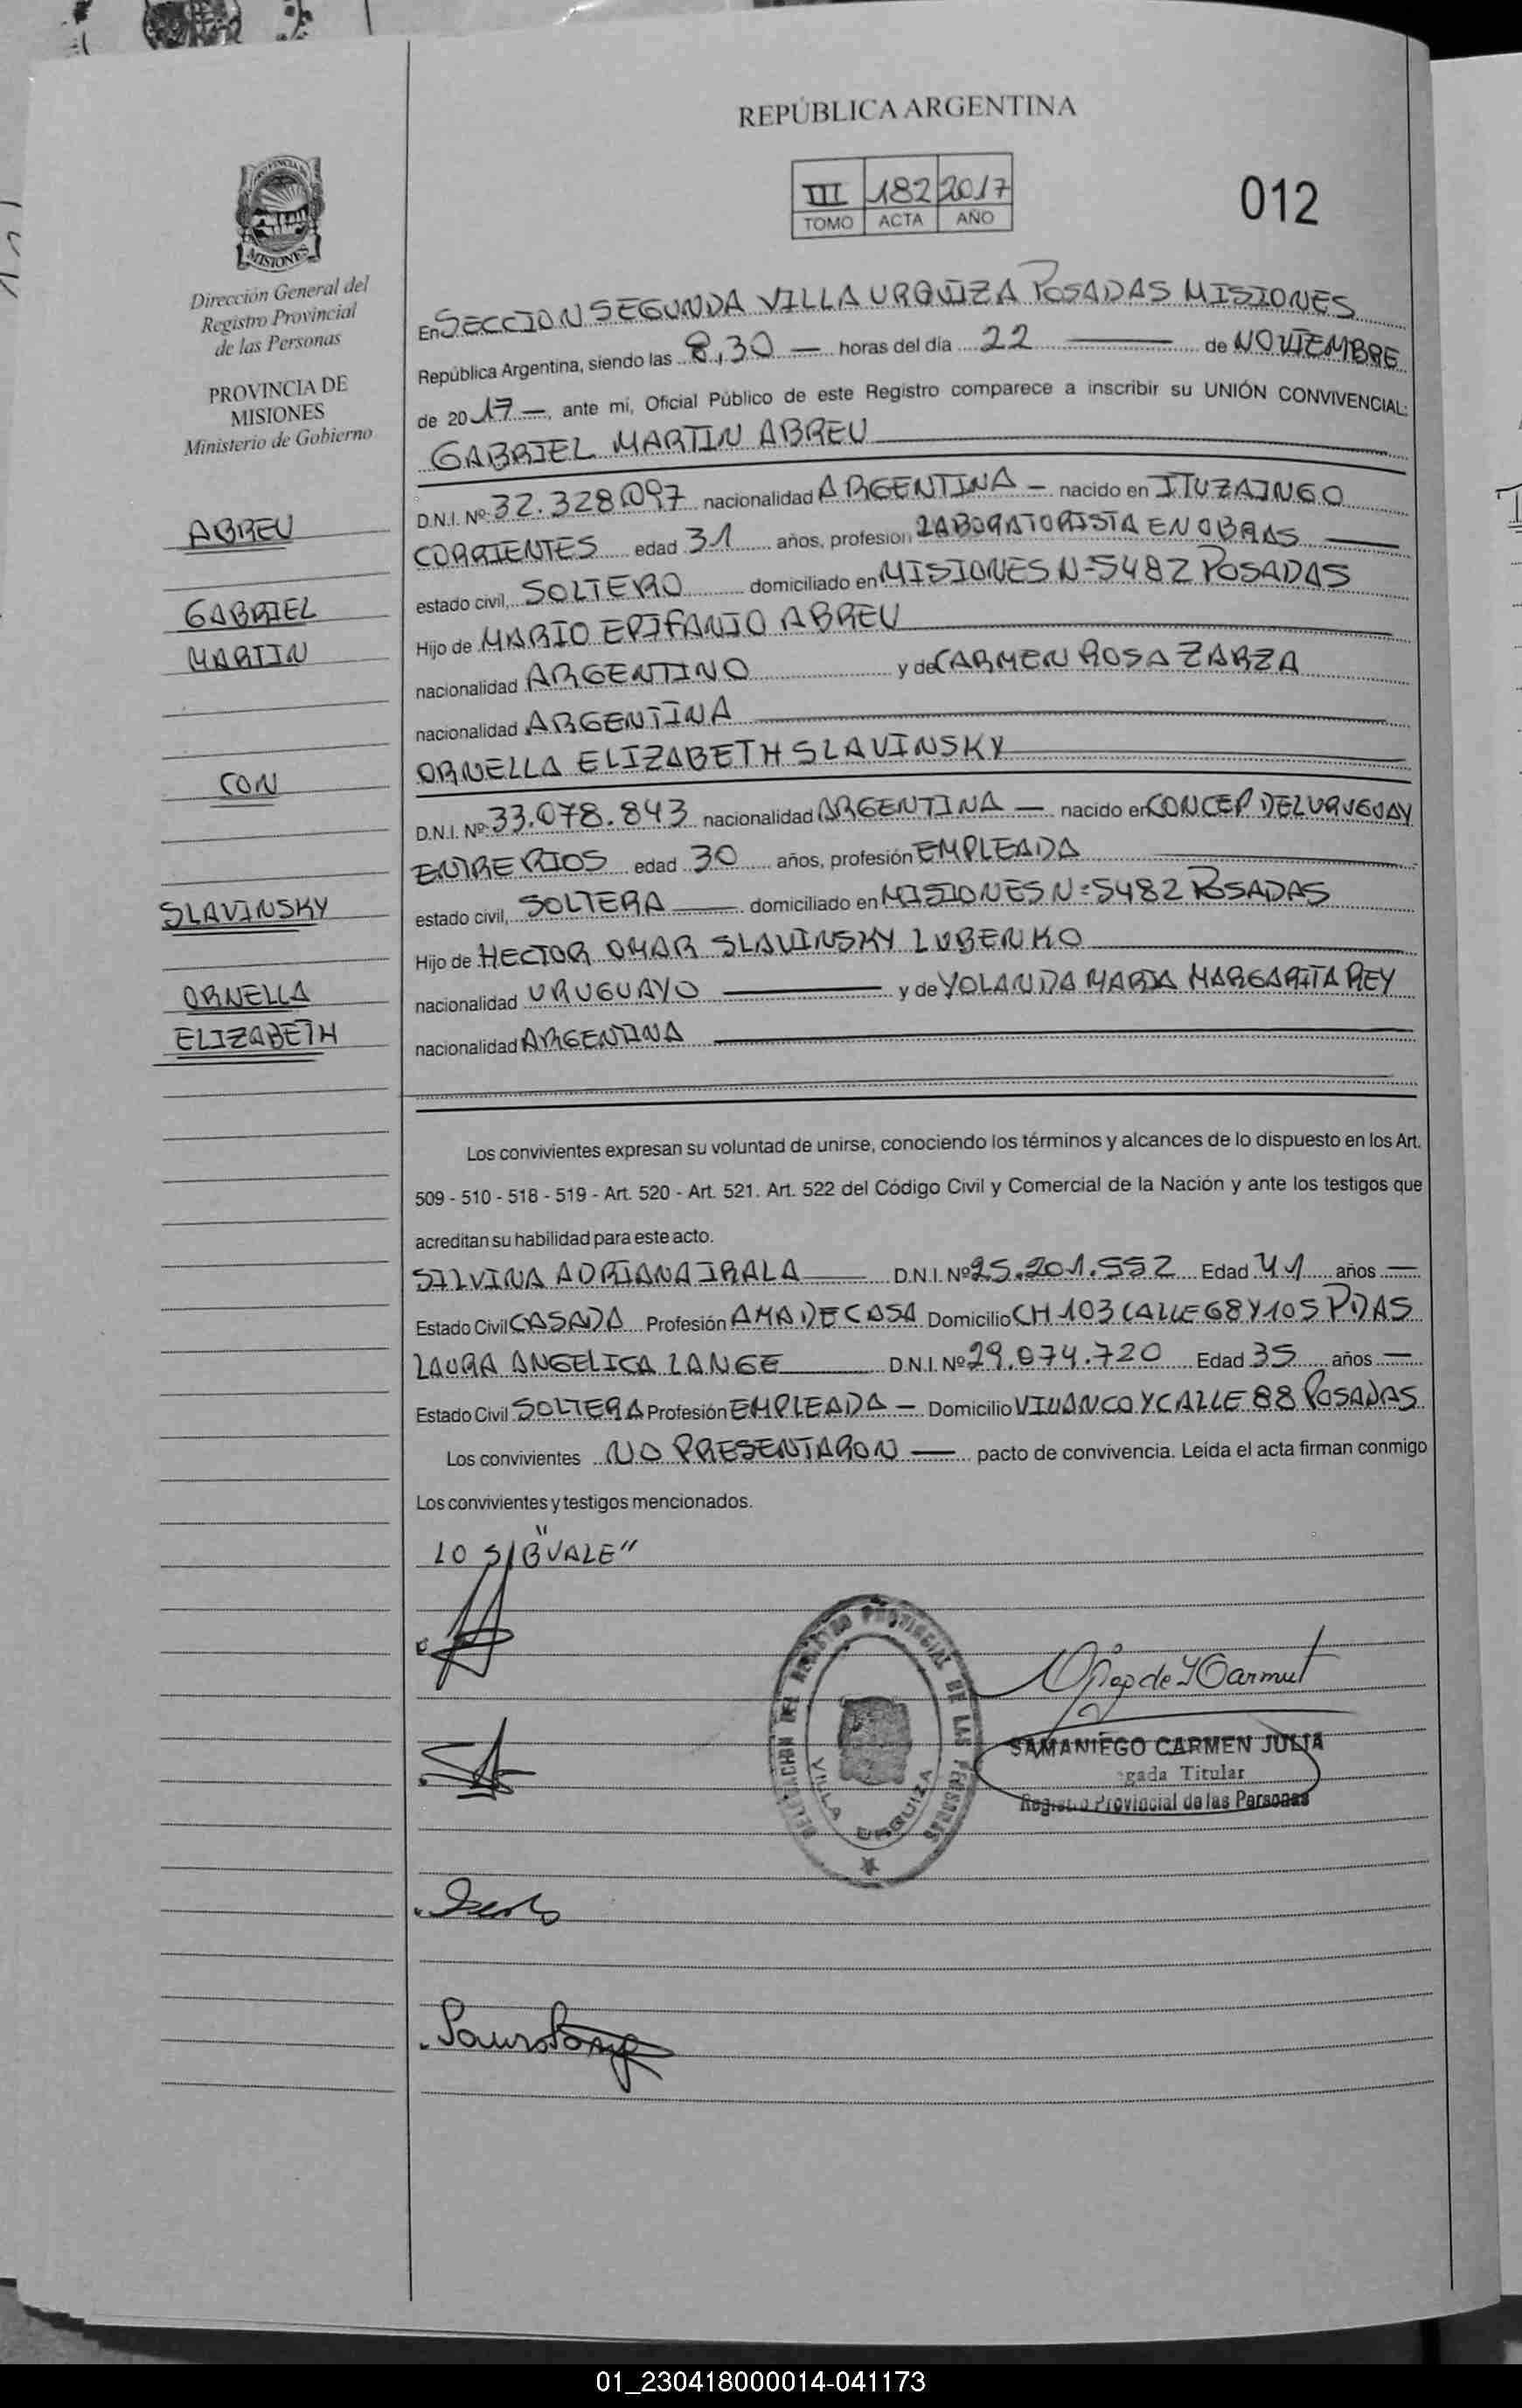 REPÚBLICA ARGENTINA
III 182 2017
TOMO ACTA AÑO
012
PROVINCIA
MISIONES
Dirección General del
Registro Provincial
de las Personas
PROVINCIA DE
MISIONES
Ministerio de Gobierno
ABREU
GABRIEL
MARTIN
CON
SLAVINSKY
ORNELLA
ELIZABETH
En SECCION SEGUNDA VILLA URQUIZA POSADAS MISIONES
República Argentina, siendo las 8,30 — horas del día 22 — de NOVIEMBRE
de 2017 —, ante mí, Oficial Público de este Registro comparece a inscribir su UNIÓN CONVIVENCIAL:
GABRIEL MARTIN ABREU
D.N.I. Nº 32.328.097 nacionalidad ARGENTINA — nacido en ITUZAINGO
CORRIENTES edad 31 años, profesión LABORATORISTA EN OBRAS —
estado civil, SOLTERO domiciliado en MISIONES N=5482 POSADAS
Hijo de MARIO EPIFANIO ABREU
nacionalidad ARGENTINO y de CARMEN ROSA ZARZA
nacionalidad ARGENTINA
ORNELLA ELIZABETH SLAVINSKY
D.N.I. Nº 33.078.843 nacionalidad ARGENTINA — nacido en CONCEP DEL URUGUAY
ENTRE RIOS edad 30 años, profesión EMPLEADA
estado civil, SOLTERA — domiciliado en MISIONES N=5482 POSADAS
Hijo de HECTOR OMAR SLAVINSKY LUBENKO
nacionalidad URUGUAYO — y de YOLANDA MARIA MARGARITA REY
nacionalidad ARGENTINA
Los convivientes expresan su voluntad de unirse, conociendo los términos y alcances de lo dispuesto en los Art.
509 - 510 - 518 - 519 - Art. 520 - Art. 521. Art. 522 del Código Civil y Comercial de la Nación y ante los testigos que
acreditan su habilidad para este acto.
SILVINA ADRIANA IRALA — D.N.I. Nº 25.201.552 Edad 41 años —
Estado Civil CASADA Profesión AMA DE CASA Domicilio CH 103 CALLE 68 Y 105 PDAS
LAURA ANGELICA LANGE — D.N.I. Nº 29.074.720 Edad 35 años —
Estado Civil SOLTERA Profesión EMPLEADA — Domicilio VIVANCO Y CALLE 88 POSADAS
Los convivientes NO PRESENTARON — pacto de convivencia. Leída el acta firman conmigo
Los convivientes y testigos mencionados.
LO S/B "VALE"
DELEGACION DEL REGISTRO PROVINCIAL DE LAS PERSONAS
VILLA URQUIZA
SAMANIEGO CARMEN JULIA
gada Titular
Registro Provincial de las Personas
01_230418000014-041173